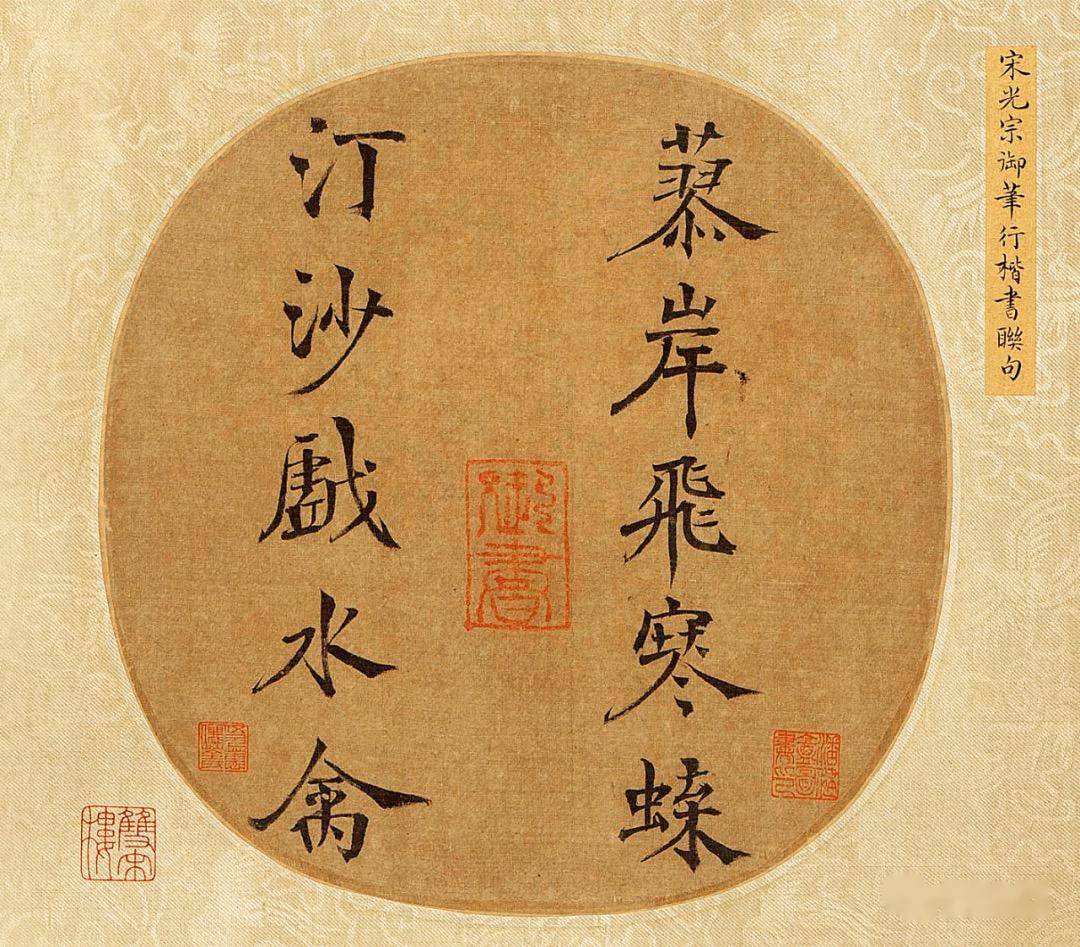 宋光宗御筆行楷書聯句
蓼岸飛寒蜨
御書
汀沙戲水禽
雙宋樓